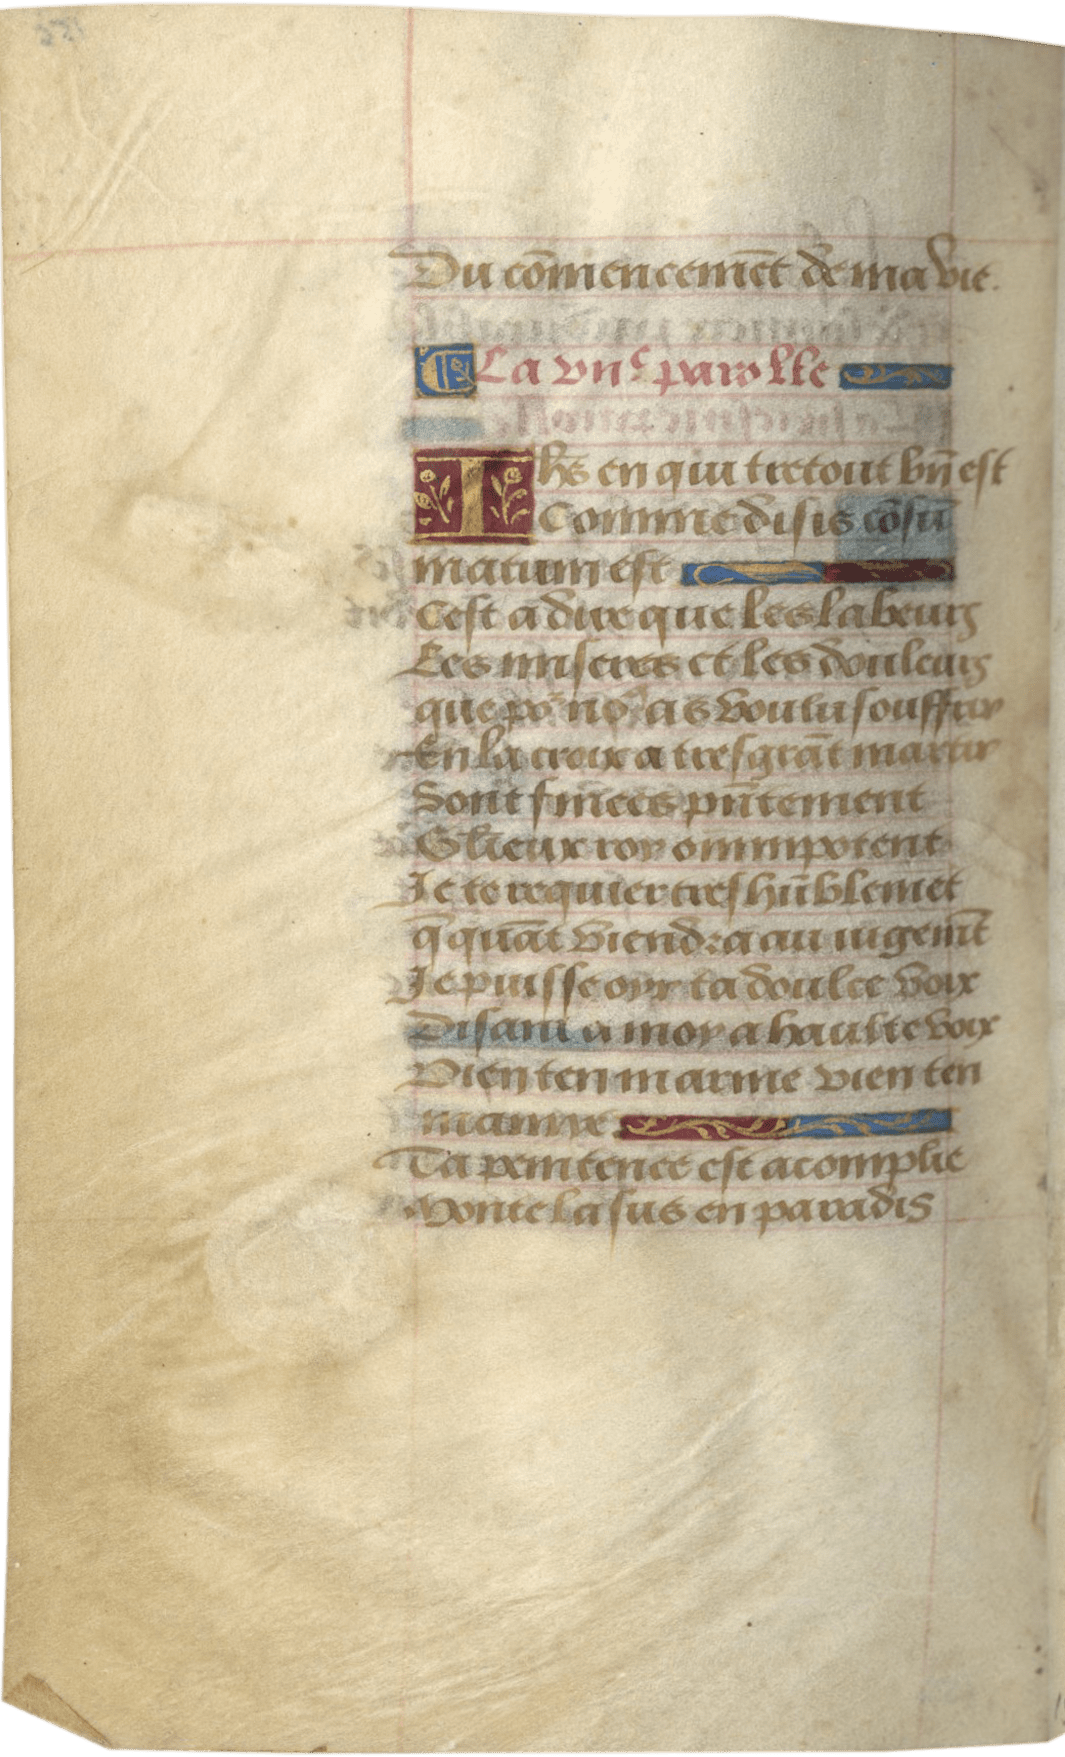 Du cōmencemēt de ma vie.
La viie parolle
Ihs en qui tretout bn̄ est
Comme disis cōsu
matum est
Cest a dire que les labeurs
Les miseres et les douleurs
que por nos as voulu souffrir
En la croix a tres grāt martir
Sont finees pn̄tement
Gl̄ieux roy omnipotent
Je te requier tres hūblemēt
q̄ quāt viendra au iugemt̄
Je puisse oyr ta doulce voix
Disant a moy a haulte voix
Vien ten marme vien ten
mamye
Ta penitence est acomplie
Monte la sus en paradis